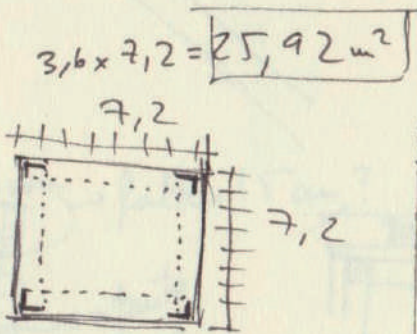 3,6 x 7,2 = 25,92 m²
7,2
7,2